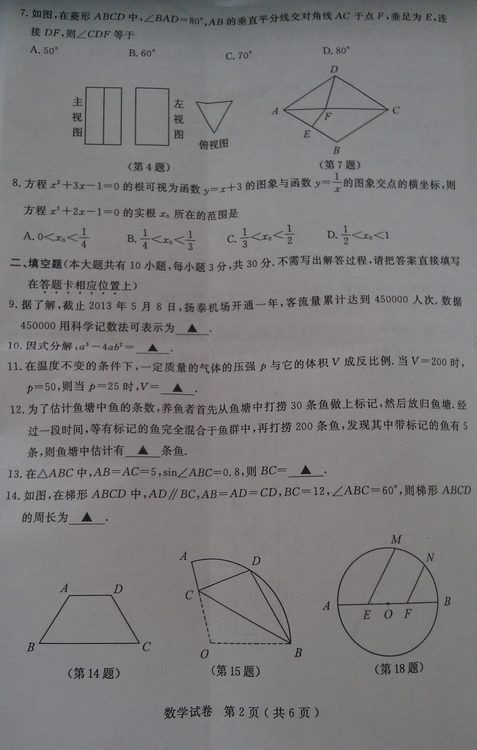 7.如图,在菱形 ABCD 中,∠BAD=80°,AB 的垂直平分线交对角线 AC 于点 F,垂足为 E,连
接 DF,则∠CDF 等于
A. 50° B. 60° C. 70° D. 80°
主视图 左视图 俯视图
A B C D E F
(第 4 题) (第 7 题)
8.方程 x²+3x-1=0 的根可视为函数 y=x+3 的图象与函数 y=1/x 的图象交点的横坐标,则
方程 x³+2x-1=0 的实根 x₀ 所在的范围是
A. 0<x₀<1/4 B. 1/4<x₀<1/3 C. 1/3<x₀<1/2 D. 1/2<x₀<1
二、填空题(本大题共有 10 小题,每小题 3 分,共 30 分.不需写出解答过程,请把答案直接填写
在答题卡相应位置上)
9.据了解,截止 2013 年 5 月 8 日,扬泰机场开通一年,客流量累计达到 450000 人次.数据
450000 用科学记数法可表示为 ▲ .
10.因式分解:a³-4ab²= ▲ .
11.在温度不变的条件下,一定质量的气体的压强 p 与它的体积 V 成反比例.当 V=200 时,
p=50,则当 p=25 时,V= ▲ .
12.为了估计鱼塘中鱼的条数,养鱼者首先从鱼塘中打捞 30 条鱼做上标记,然后放归鱼塘.经
过一段时间,等有标记的鱼完全混合于鱼群中,再打捞 200 条鱼,发现其中带标记的鱼有 5
条,则鱼塘中估计有 ▲ 条鱼.
13.在△ABC 中,AB=AC=5,sin∠ABC=0.8,则 BC= ▲ .
14.如图,在梯形 ABCD 中,AD∥BC,AB=AD=CD,BC=12,∠ABC=60°,则梯形 ABCD
的周长为 ▲ .
A D B C
A D C O B
M N A E O F B
(第 14 题) (第 15 题) (第 18 题)
数学试卷 第 2 页(共 6 页)